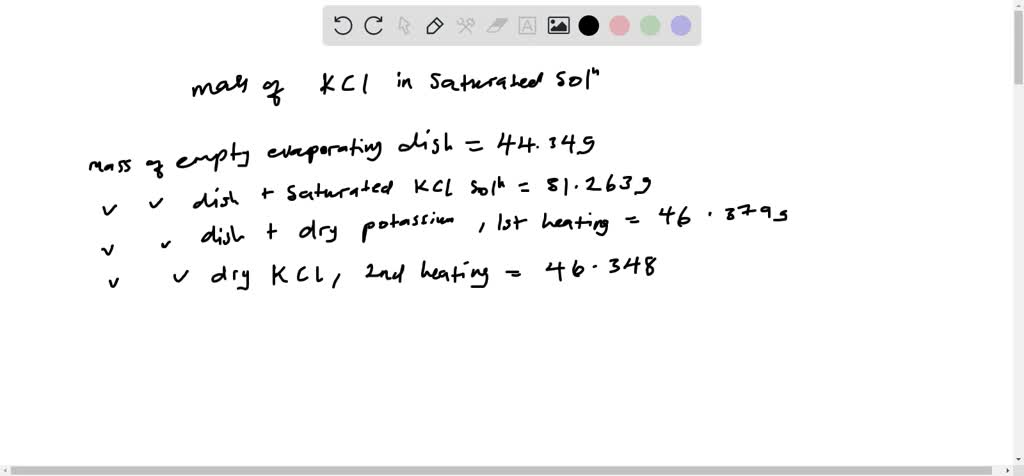 mass of KCl in saturated solⁿ
mass of empty evaporating dish = 44.349
v v dish + saturated KCl solⁿ = 51.263g
v v dish + dry potassium, 1st heating = 46.379g
v v dry KCl, 2nd heating = 46.348